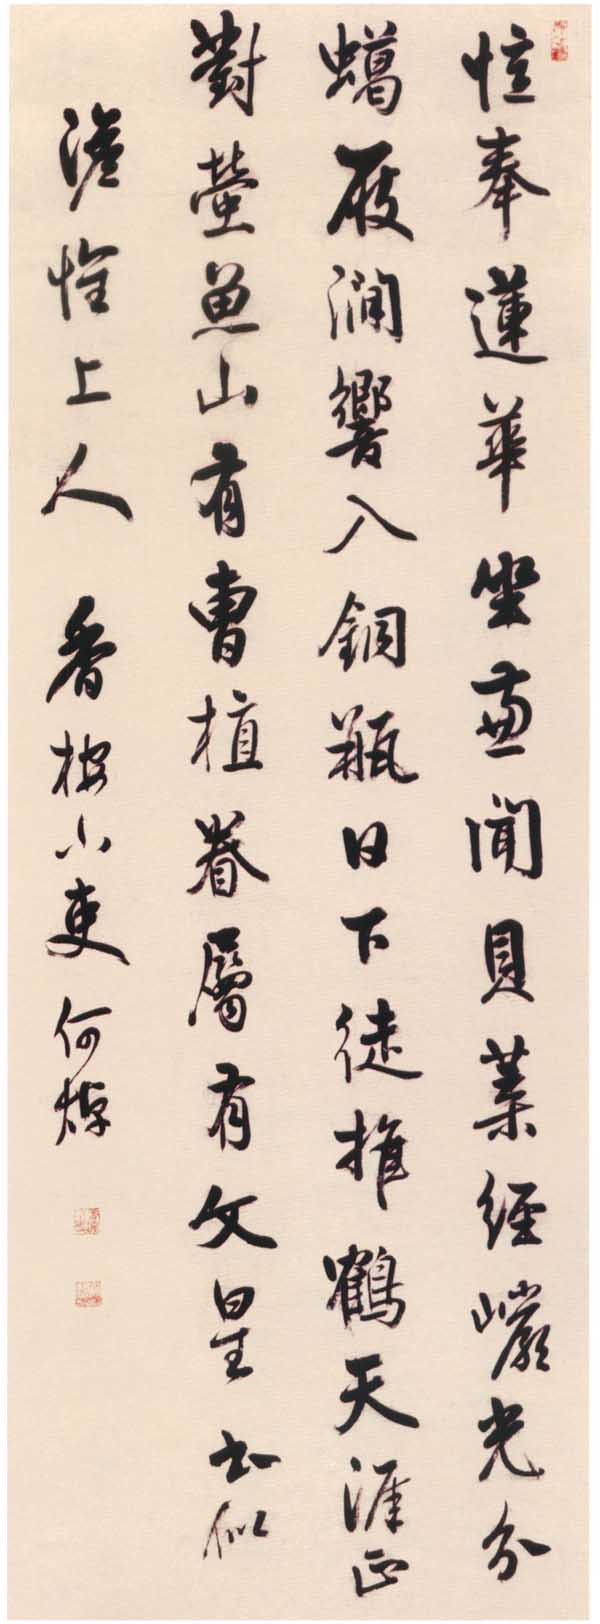 憶奉蓮華坐兼聞貝葉經巖光分
蠟屐澗響入銅瓶日下徒推鶴天涯正
對螢魚山有曹植眷屬有文星書似
澹上人香桉小吏何焯